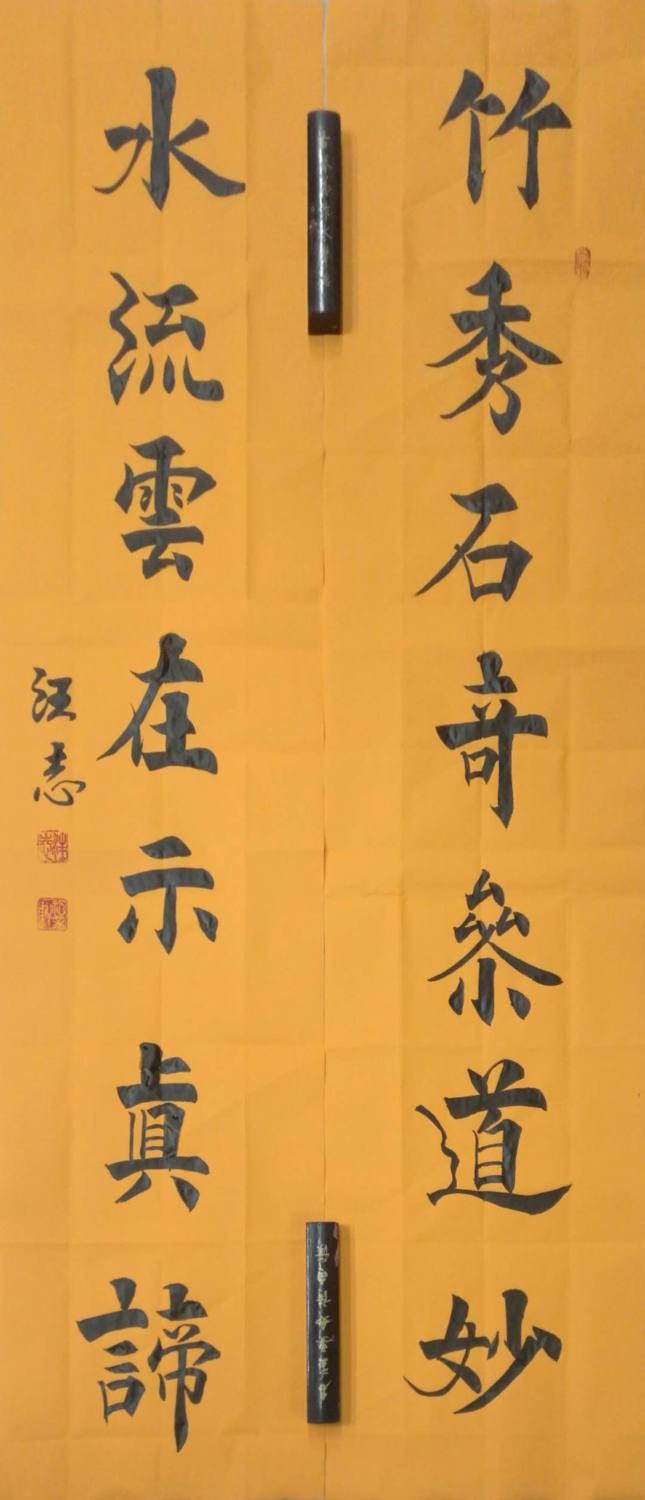 竹秀石奇參道妙
水流雲在示真諦
汪志